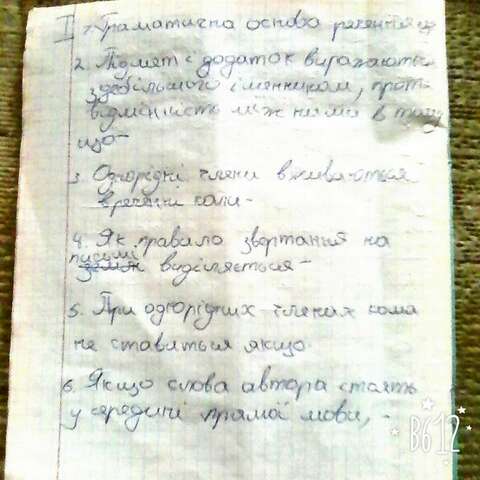 I 1. Граматична основа речення це
2. Підмет і додаток виражаються
здебільшого іменником, проте
відмінність між ними в тому
що -
3. Однорідні члени вживаються
в реченні коли -
4. Як правило звертання на
письмі виділяється -
5. При однорідних членах кома
не ставиться якщо.
6. Якщо слова автора стоять
у середині прямої мови, -
B612